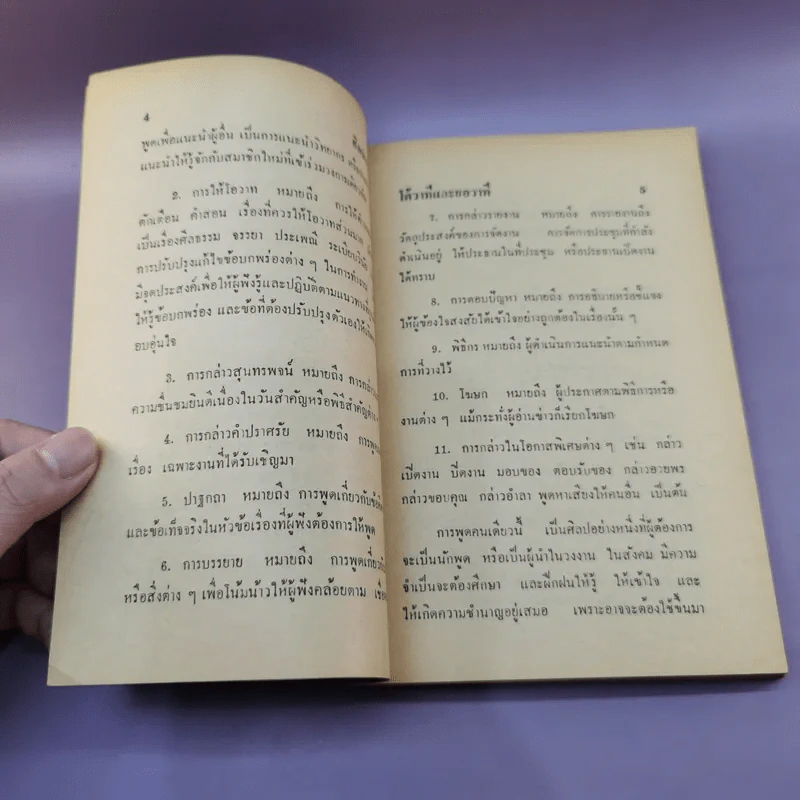 4
พูดเพื่อแนะนำผู้อื่น เป็นการแนะนำวิทยากร
แนะนำให้รู้จักกับสมาชิกใหม่ที่เข้าร่วมวงการเดียวกัน
2. การให้โอวาท หมายถึง การให้
ตักเตือน คำสอน เรื่องที่ควรให้โอวาทส่วนมาก
เป็นเรื่องศีลธรรม จรรยา ประเพณี ระเบียบวินัย
การปรับปรุงแก้ไขข้อบกพร่องต่าง ๆ ในการทำงาน
มีจุดประสงค์เพื่อให้ผู้ฟังรู้และปฏิบัติตามแนวทาง
ให้รู้ข้อบกพร่อง และข้อที่ต้องปรับปรุงตัวเองให้
อบอุ่นใจ
3. การกล่าวสุนทรพจน์ หมายถึง การกล่าว
ความชื่นชมยินดีเนื่องในวันสำคัญหรือพิธีสำคัญต่าง ๆ
4. การกล่าวคำปราศรัย หมายถึง การพูด
เรื่อง เฉพาะงานที่ได้รับเชิญมา
5. ปาฐกถา หมายถึง การพูดเกี่ยวกับข้อคิด
และข้อเท็จจริงในหัวข้อเรื่องที่ผู้ฟังต้องการให้พูด
6. การบรรยาย หมายถึง การพูดเกี่ยวกับ
หรือสิ่งต่าง ๆ เพื่อโน้มน้าวให้ผู้ฟังคล้อยตาม
โต้วาทีและยอวาที 5
7. การกล่าวรายงาน หมายถึง การรายงานถึง
วัตถุประสงค์ของการจัดงาน การจัดการประชุมที่กำลัง
ดำเนินอยู่ ให้ประธานในที่ประชุม หรือประธานเปิดงาน
ได้ทราบ
8. การตอบปัญหา หมายถึง การอธิบายหรือชี้แจง
ให้ผู้ข้องใจสงสัยได้เข้าใจอย่างถูกต้องในเรื่องนั้น ๆ
9. พิธีกร หมายถึง ผู้ดำเนินการแนะนำตามกำหนด
การที่วางไว้
10. โฆษก หมายถึง ผู้ประกาศตามพิธีการหรือ
งานต่าง ๆ แม้กระทั่งผู้อ่านข่าวก็เรียกโฆษก
11. การกล่าวในโอกาสพิเศษต่าง ๆ เช่น กล่าว
เปิดงาน ปิดงาน มอบของ ตอบรับของ กล่าวอวยพร
กล่าวขอบคุณ กล่าวอำลา พูดหาเสียงให้คนอื่น เป็นต้น
การพูดคนเดียวนี้ เป็นศิลปอย่างหนึ่งที่ผู้ต้องการ
จะเป็นนักพูด หรือเป็นผู้นำในวงงาน ในสังคม มีความ
จำเป็นจะต้องศึกษา และฝึกฝนให้รู้ ให้เข้าใจ และ
ให้เกิดความชำนาญอยู่เสมอ เพราะอาจจะต้องใช้ขึ้นมา